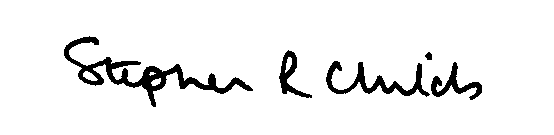 Stephen R Childs